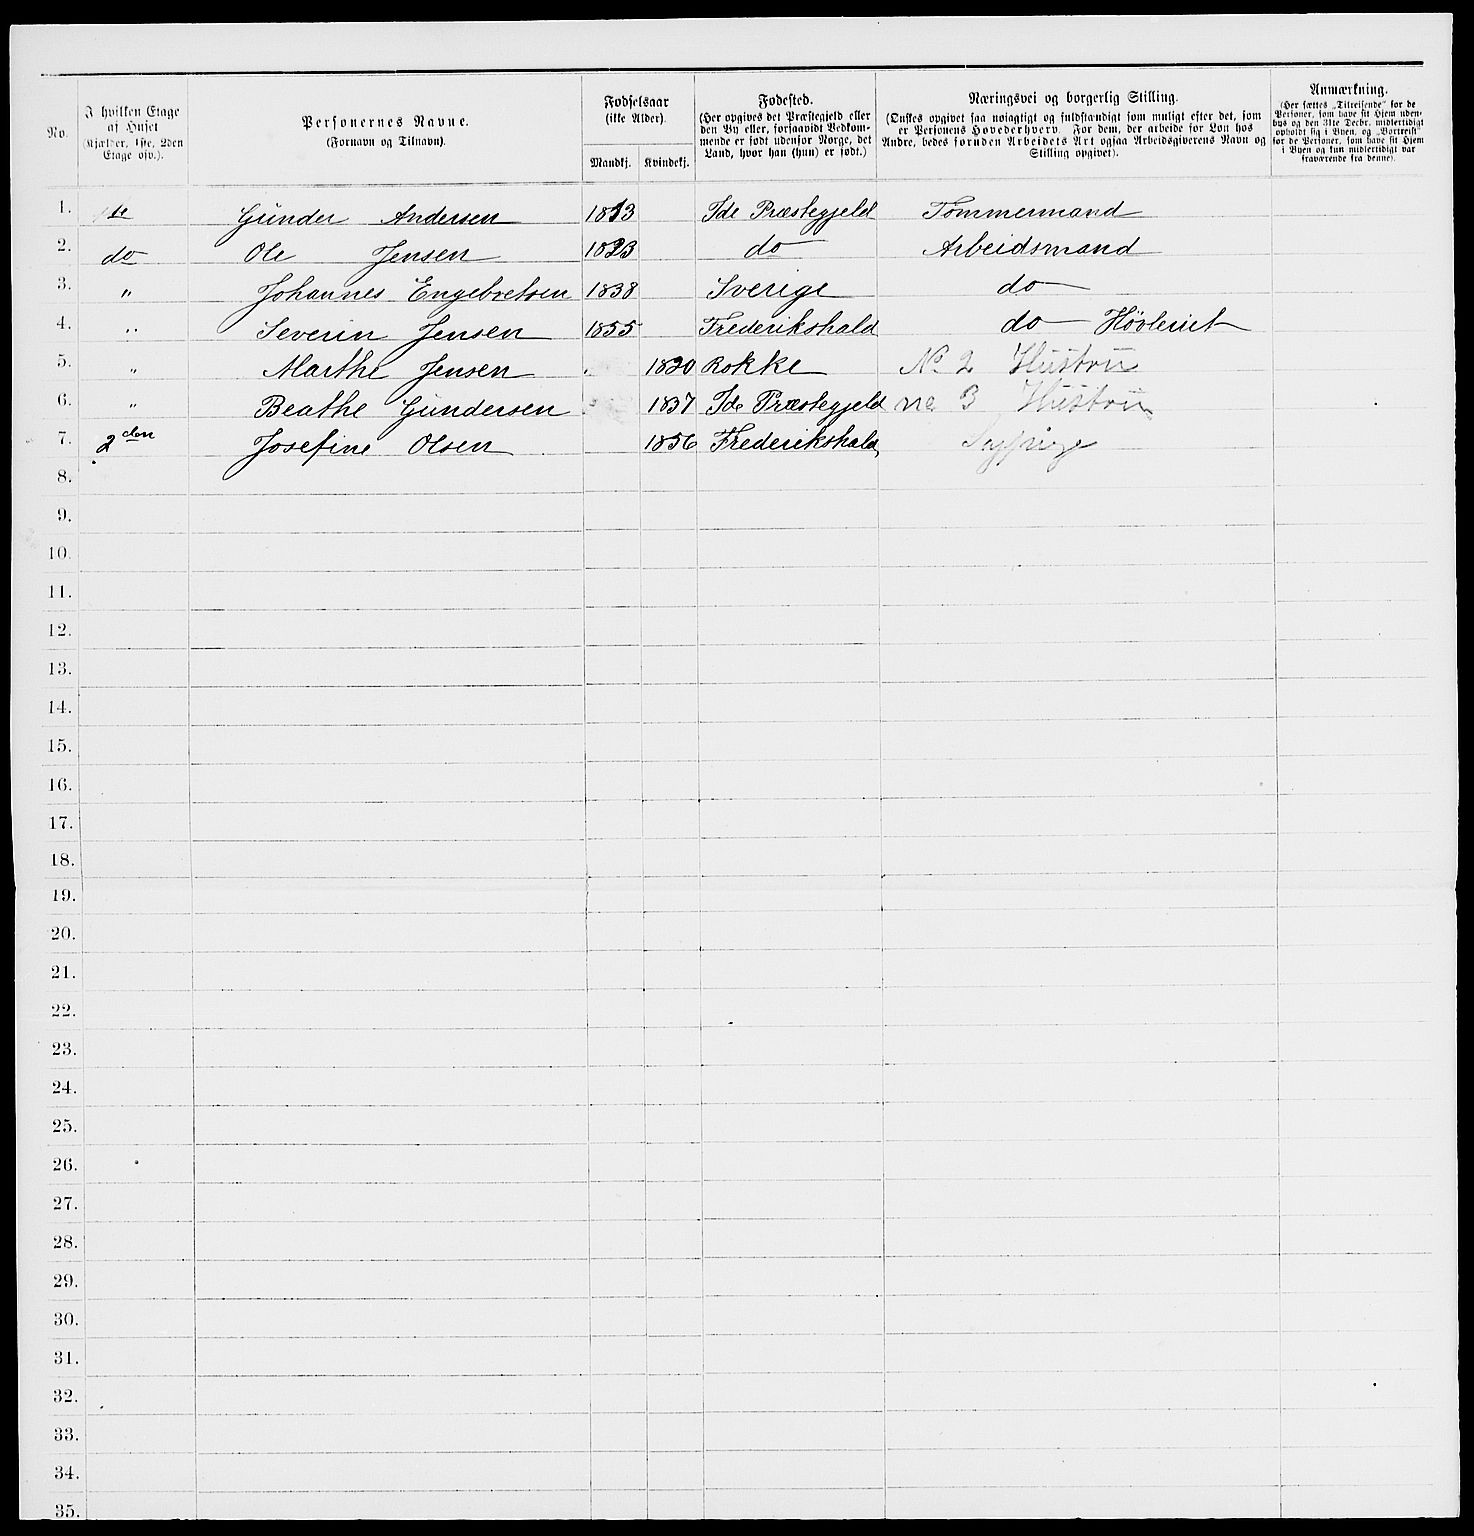 No.
I hvilken Etage af Huset (Kjælder, 1ste, 2den Etage osv.).
Personernes Navne. (Fornavn og Tilnavn).
Fødselsaar (ikke Alder).
Mandkj. Kvindekj.
Fødested. (Her opgives det Præstegjeld eller den By eller, forsaavidt Vedkommende er født udenfor Norge, det Land, hvor han (hun) er født.)
Næringsvei og borgerlig Stilling. (Ønskes opgivet saa nøiagtigt og fuldstændigt som muligt efter det, som er Personens Hovederhverv. For dem, der arbeide for Løn hos Andre, bedes foruden Arbeidets Art ogsaa Arbeidsgiverens Navn og Stilling opgivet).
Anmærkning. (Her sættes „Tilreisende“ for de Personer, som have sit Hjem udenbys og den 31te Decbr. midlertidigt opholdt sig i Byen, og „Bortreist“ for de Personer, som have sit Hjem i Byen og kun midlertidigt var fraværende fra denne).
1. 1ste Gunder Andersen 1813 Ide Præstegjeld Tømmermand
2. do Ole Jensen 1823 do Arbeidsmand
3. " Johannes Engebretsen 1838 Sverige do
4. " Severin Jensen 1855 Frederikshald do Høvleriet
5. " Marthe Jensen 1820 Rokke No 2 Hustru
6. " Beathe Gundersen 1837 Ide Præstegjeld no 3 Hustru
7. 2den Josefine Olsen 1856 Frederikshald Sypige
8.
9.
10.
11.
12.
13.
14.
15.
16.
17.
18.
19.
20.
21.
22.
23.
24.
25.
26.
27.
28.
29.
30.
31.
32.
33.
34.
35.